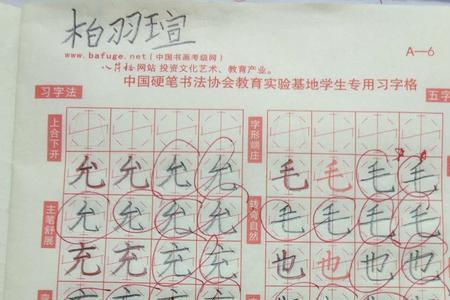 柏羽瑄
www.bafuge.net(中国书画考级网)
A—6
八符格网站 投资文化艺术、教育产业。
中国硬笔书法协会教育实验基地学生专用习字格
习字法
五字
上合下开
字形端庄
允 允 允 允 毛 毛 毛 毛
主笔舒展
转弯自然
允 允 允 允 毛 毛 毛 毛
充 充 充 充 也 也 也 也